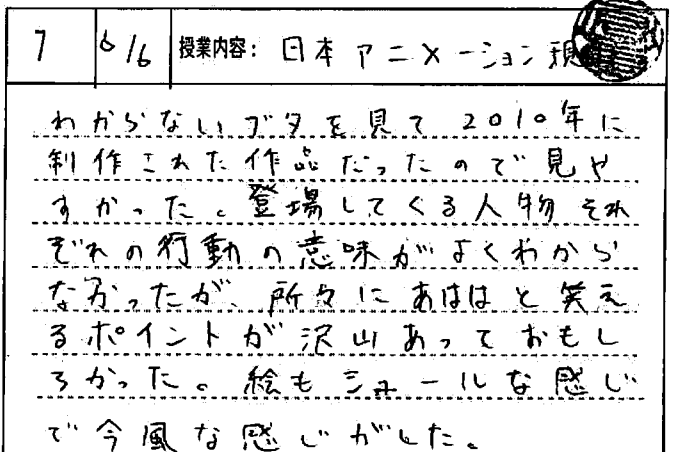 7 6/6 授業内容： 日本アニメーション現
わからないブタを見て2010年に
制作された作品だったので見や
すかった。登場してくる人物それ
ぞれの行動の意味がよくわから
なかったが、所々にあははと笑え
るポイントが沢山あっておもし
ろかった。絵もシュールな感じ
で今風な感じがした。